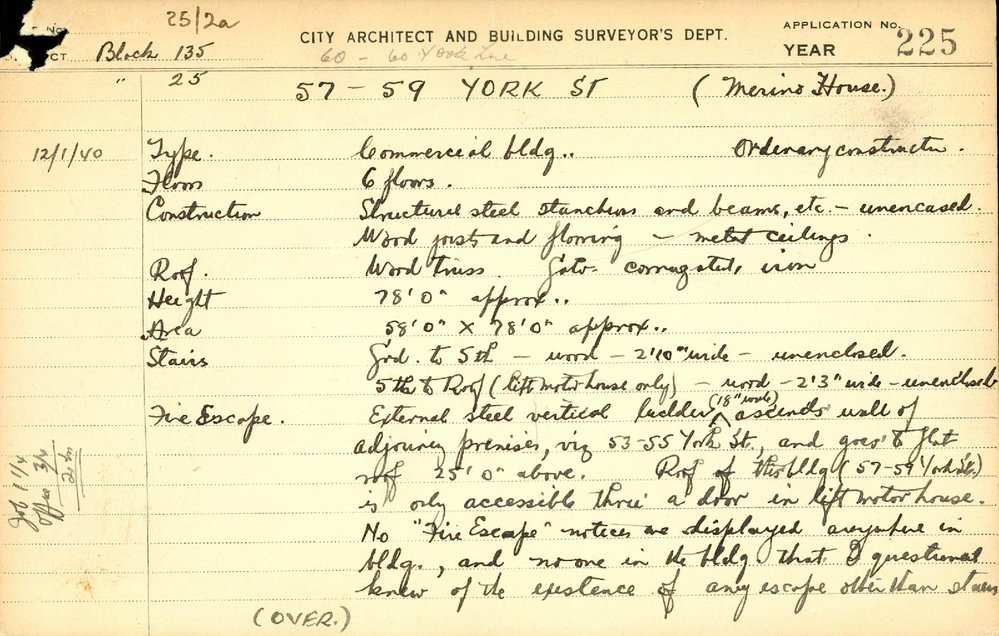 25/2a
No.
CITY ARCHITECT AND BUILDING SURVEYOR'S DEPT.
APPLICATION No. 225
PCT Block 135
60 - 60 York Lne
YEAR
" 25
57 - 59 YORK ST (Merino House.)
12/1/40 Type. Commercial bldg.. Ordinary constructn.
Floors 6 floors.
Construction Structural steel stanchions and beams, etc. - unencased.
Wood joists and flooring - metal ceilings.
Roof. Wood truss. Galv. corrugated, iron
Height 78'0" approx..
Area 58'0" x 78'0" approx..
Stairs Grd. to 5th - wood - 2'10" wide - unenclosed.
5th to Roof (lift motor house only) - wood - 2'3" wide - unenclosed
Fire Escape. External steel vertical ladder (18" wide) ascends wall of
adjoining premises, viz 53-55 York St., and goes to flat
roof 25'0" above. Roof of this bldg (57-59 York St.)
is only accessible thro' a door in lift motor house.
No "Fire Escape" notices are displayed anywhere in
bldg., and no one in the bldg that I questioned
knew of the existence of any escape other than stairs
Job 1 1/4
Office 3/4
2 hrs
(OVER.)